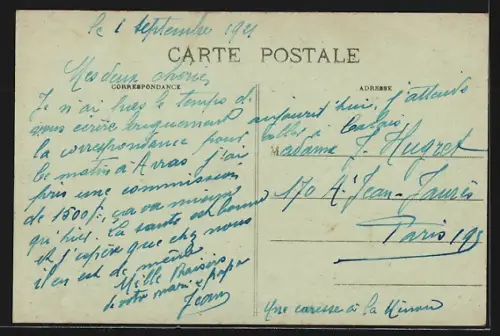 le 1 Septembre 1921
CARTE POSTALE
CORRESPONDANCE
ADRESSE
Mes deux chéries
Je n'ai pas le temps de
vous écrire longuement aujourd'hui, j'attends
la correspondance pour aller à Calais.
ce matin à Arras j'ai
pris une commission
de 1500f, ça va mieux
qu'hier. La santé est bonne
et j'espère que chez vous
il en est de même
Mille Baisers
de votre mari & papa
Jean
Madame J. Hugret
170 A. Jean-Jaurès
Paris 19e
Une caresse à la Minou